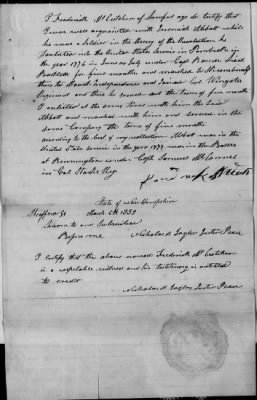 I Frederick McCutchen of lawful age do testify that
I was well acquainted with Jeremiah Abbott which
he was a Soldier in the Army of the Revolution he
Enlisted into the United States Service in Pembroke in
the year 1776 in June or July under Capt Barnes
for five months and marched to
thence to Mount Independence and joined Col Wingates
Regiment and there he served out the term of five months
I enlisted at the same time with him the said
Abbott and marched with him and served in the
same Company the term of five months
according to the best of my recollection Abbott was in the
United States Service in the year 1777 was in the Battle
at Bennington under Capt Samuel McConnel
in Gen Starks Reg
State of New Hampshire
Strafford SS March 1832
Sworn to and Subscribed
Before me Nicholas G Taylor Justice Peace
I certify that the above named Frederick McCutchen
is a respectable witness and his testimony is entitled
to credit
Nicholas G Taylor Justice Peace